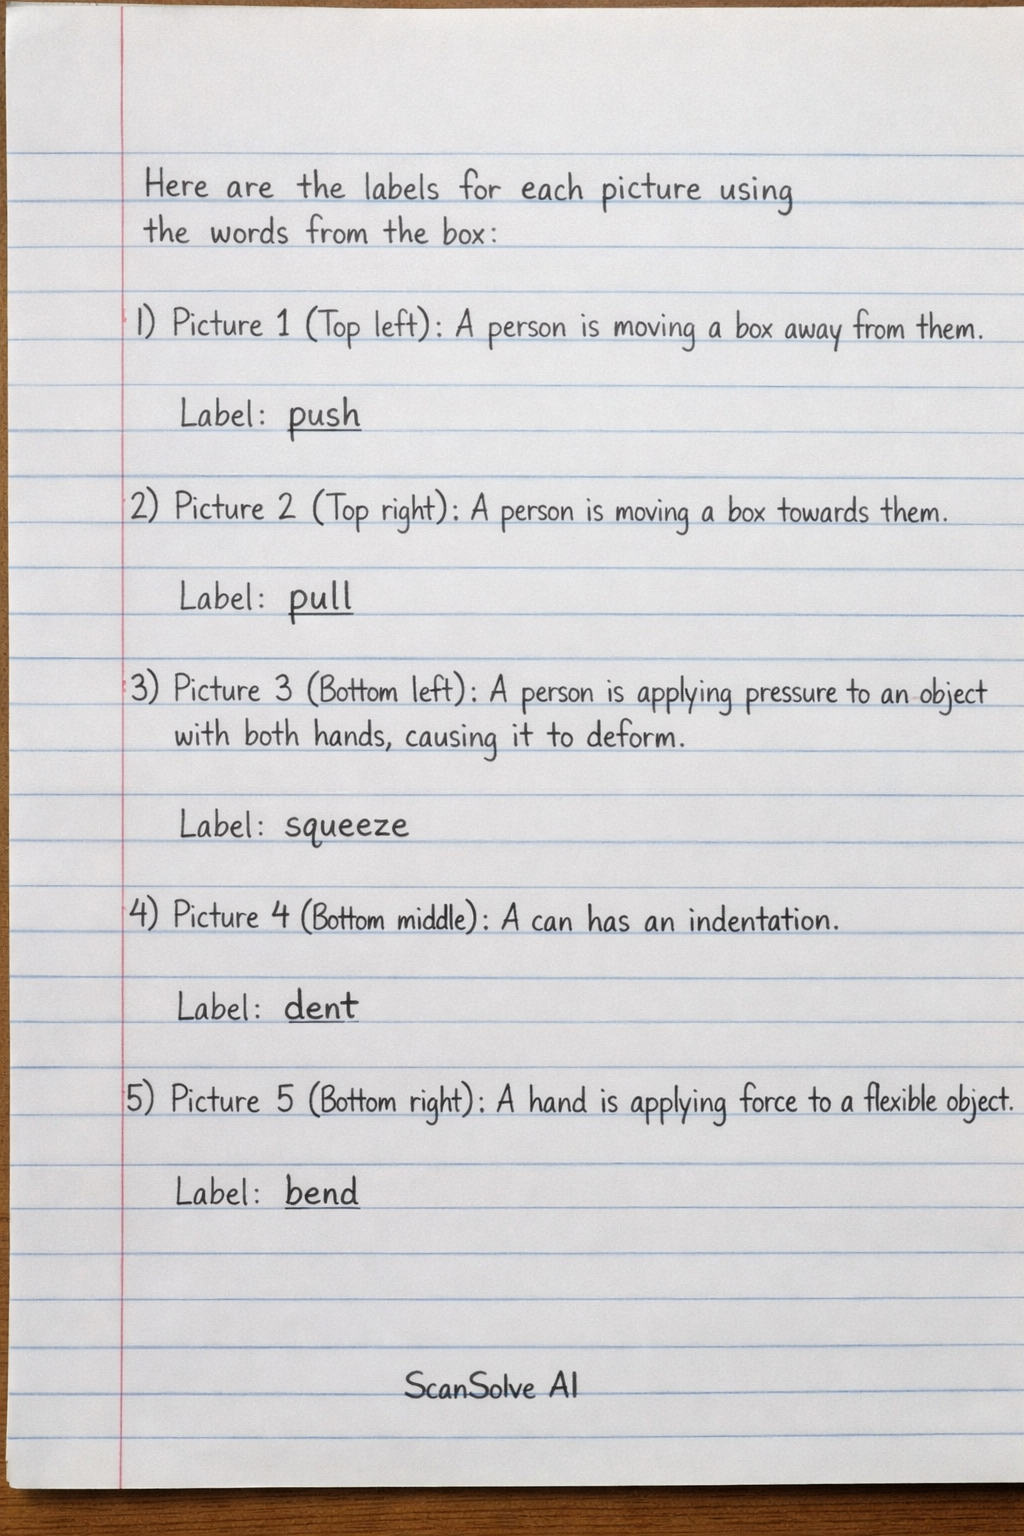 Here are the labels for each picture using
the words from the box:
1) Picture 1 (Top left): A person is moving a box away from them.
Label: push
2) Picture 2 (Top right): A person is moving a box towards them.
Label: pull
3) Picture 3 (Bottom left): A person is applying pressure to an object
with both hands, causing it to deform.
Label: squeeze
4) Picture 4 (Bottom middle): A can has an indentation.
Label: dent
5) Picture 5 (Bottom right): A hand is applying force to a flexible object.
Label: bend
ScanSolve AI